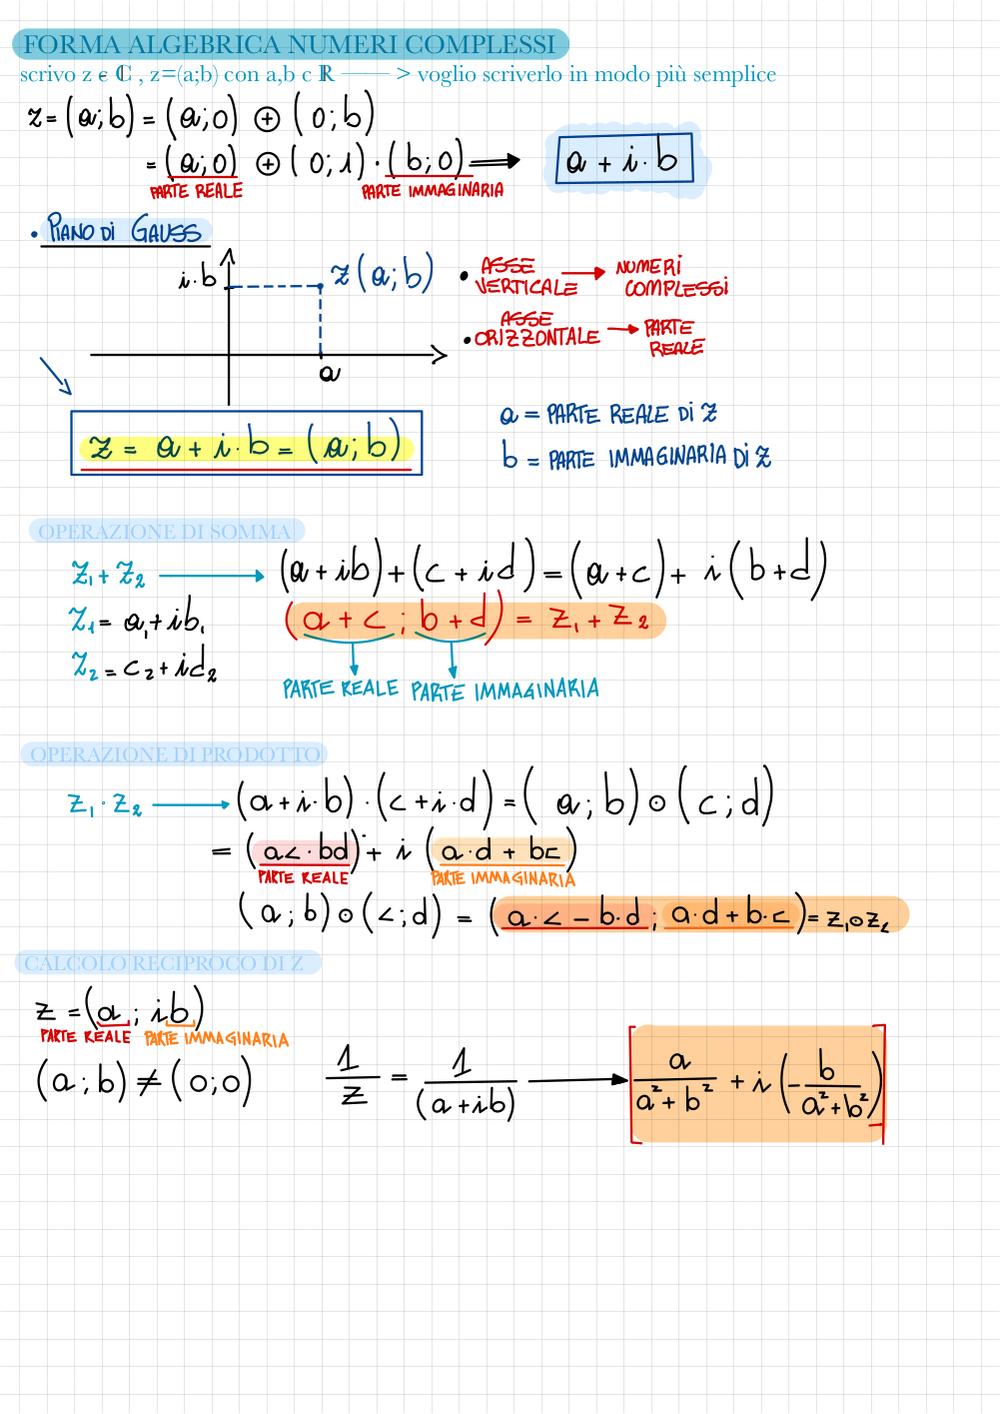 FORMA ALGEBRICA NUMERI COMPLESSI
scrivo z є ℂ , z=(a;b) con a,b c ℝ ——— > voglio scriverlo in modo più semplice
z = (a;b) = (a;0) ⊕ (0;b)
= (a;0) ⊕ (0;1) · (b;0) ⟶ a + i·b
PARTE REALE PARTE IMMAGINARIA
• PIANO Di GAUSS
i·b z(a;b) • ASSE VERTICALE → NUMERi COMPLESSi
• ASSE ORIZZONTALE → PARTE REALE
a
z = a + i·b = (a;b)
a = PARTE REALE Di z
b = PARTE IMMAGINARIA Di z
OPERAZIONE DI SOMMA
z₁ + z₂ ⟶ (a+ib)+(c+id)=(a+c)+ i(b+d)
z₁ = a₁+ib₁ (a+c ; b+d) = z₁ + z₂
z₂ = c₂+id₂
PARTE REALE PARTE IMMAGINARIA
OPERAZIONE DI PRODOTTO
z₁ · z₂ ⟶ (a+i·b)·(c+i·d)=( a;b)⊙(c;d)
= (ac·bd)+ i (a·d + bc)
PARTE REALE PARTE IMMAGINARIA
(a;b)⊙(c;d) = (a·c - b·d ; a·d+b·c)= z₁⊙z₂
CALCOLO RECIPROCO DI Z
z =(a ; ib)
PARTE REALE PARTE IMMAGINARIA
(a;b) ≠ (0;0) 1/z = 1/(a+ib) ⟶ [a/(a²+b²) + i(-b/(a²+b²))]